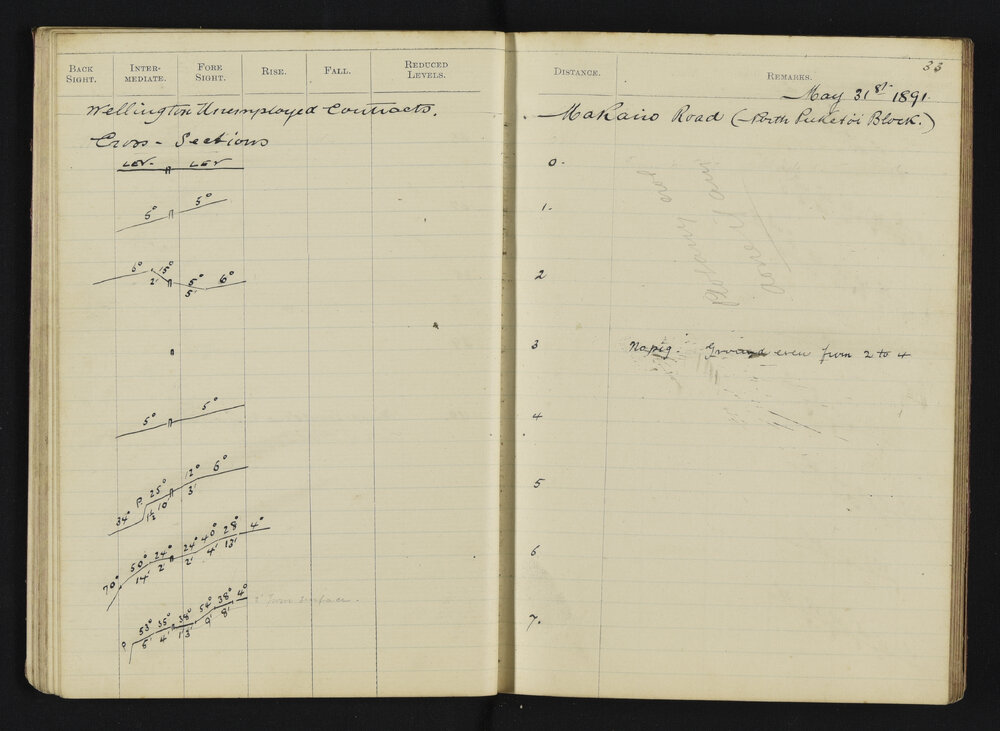 BACK SIGHT. INTER-MEDIATE. FORE SIGHT. RISE. FALL. REDUCED LEVELS.
Wellington Unemployed Contracts.
Cross - Sections
LEV. LEV
5° 5°
6° 15° 5° 6°
2' 5'
5° 5°
34° P. 25° 12° 6°
1½ 10' 3'
70° 50° 24° 24° 40° 28° 4°
14' 2' 2' 4' 13'
P. 53° 35° 38° 54° 38° 4°
8' 4' 1' 3' 9' 8'
2' from surface.
33
DISTANCE. REMARKS.
May 31st 1891.
Makairo Road (North Puketoi Block.)
0.
1.
2
3 No pig. Ground even from 2 to 4
4
5
6
7.